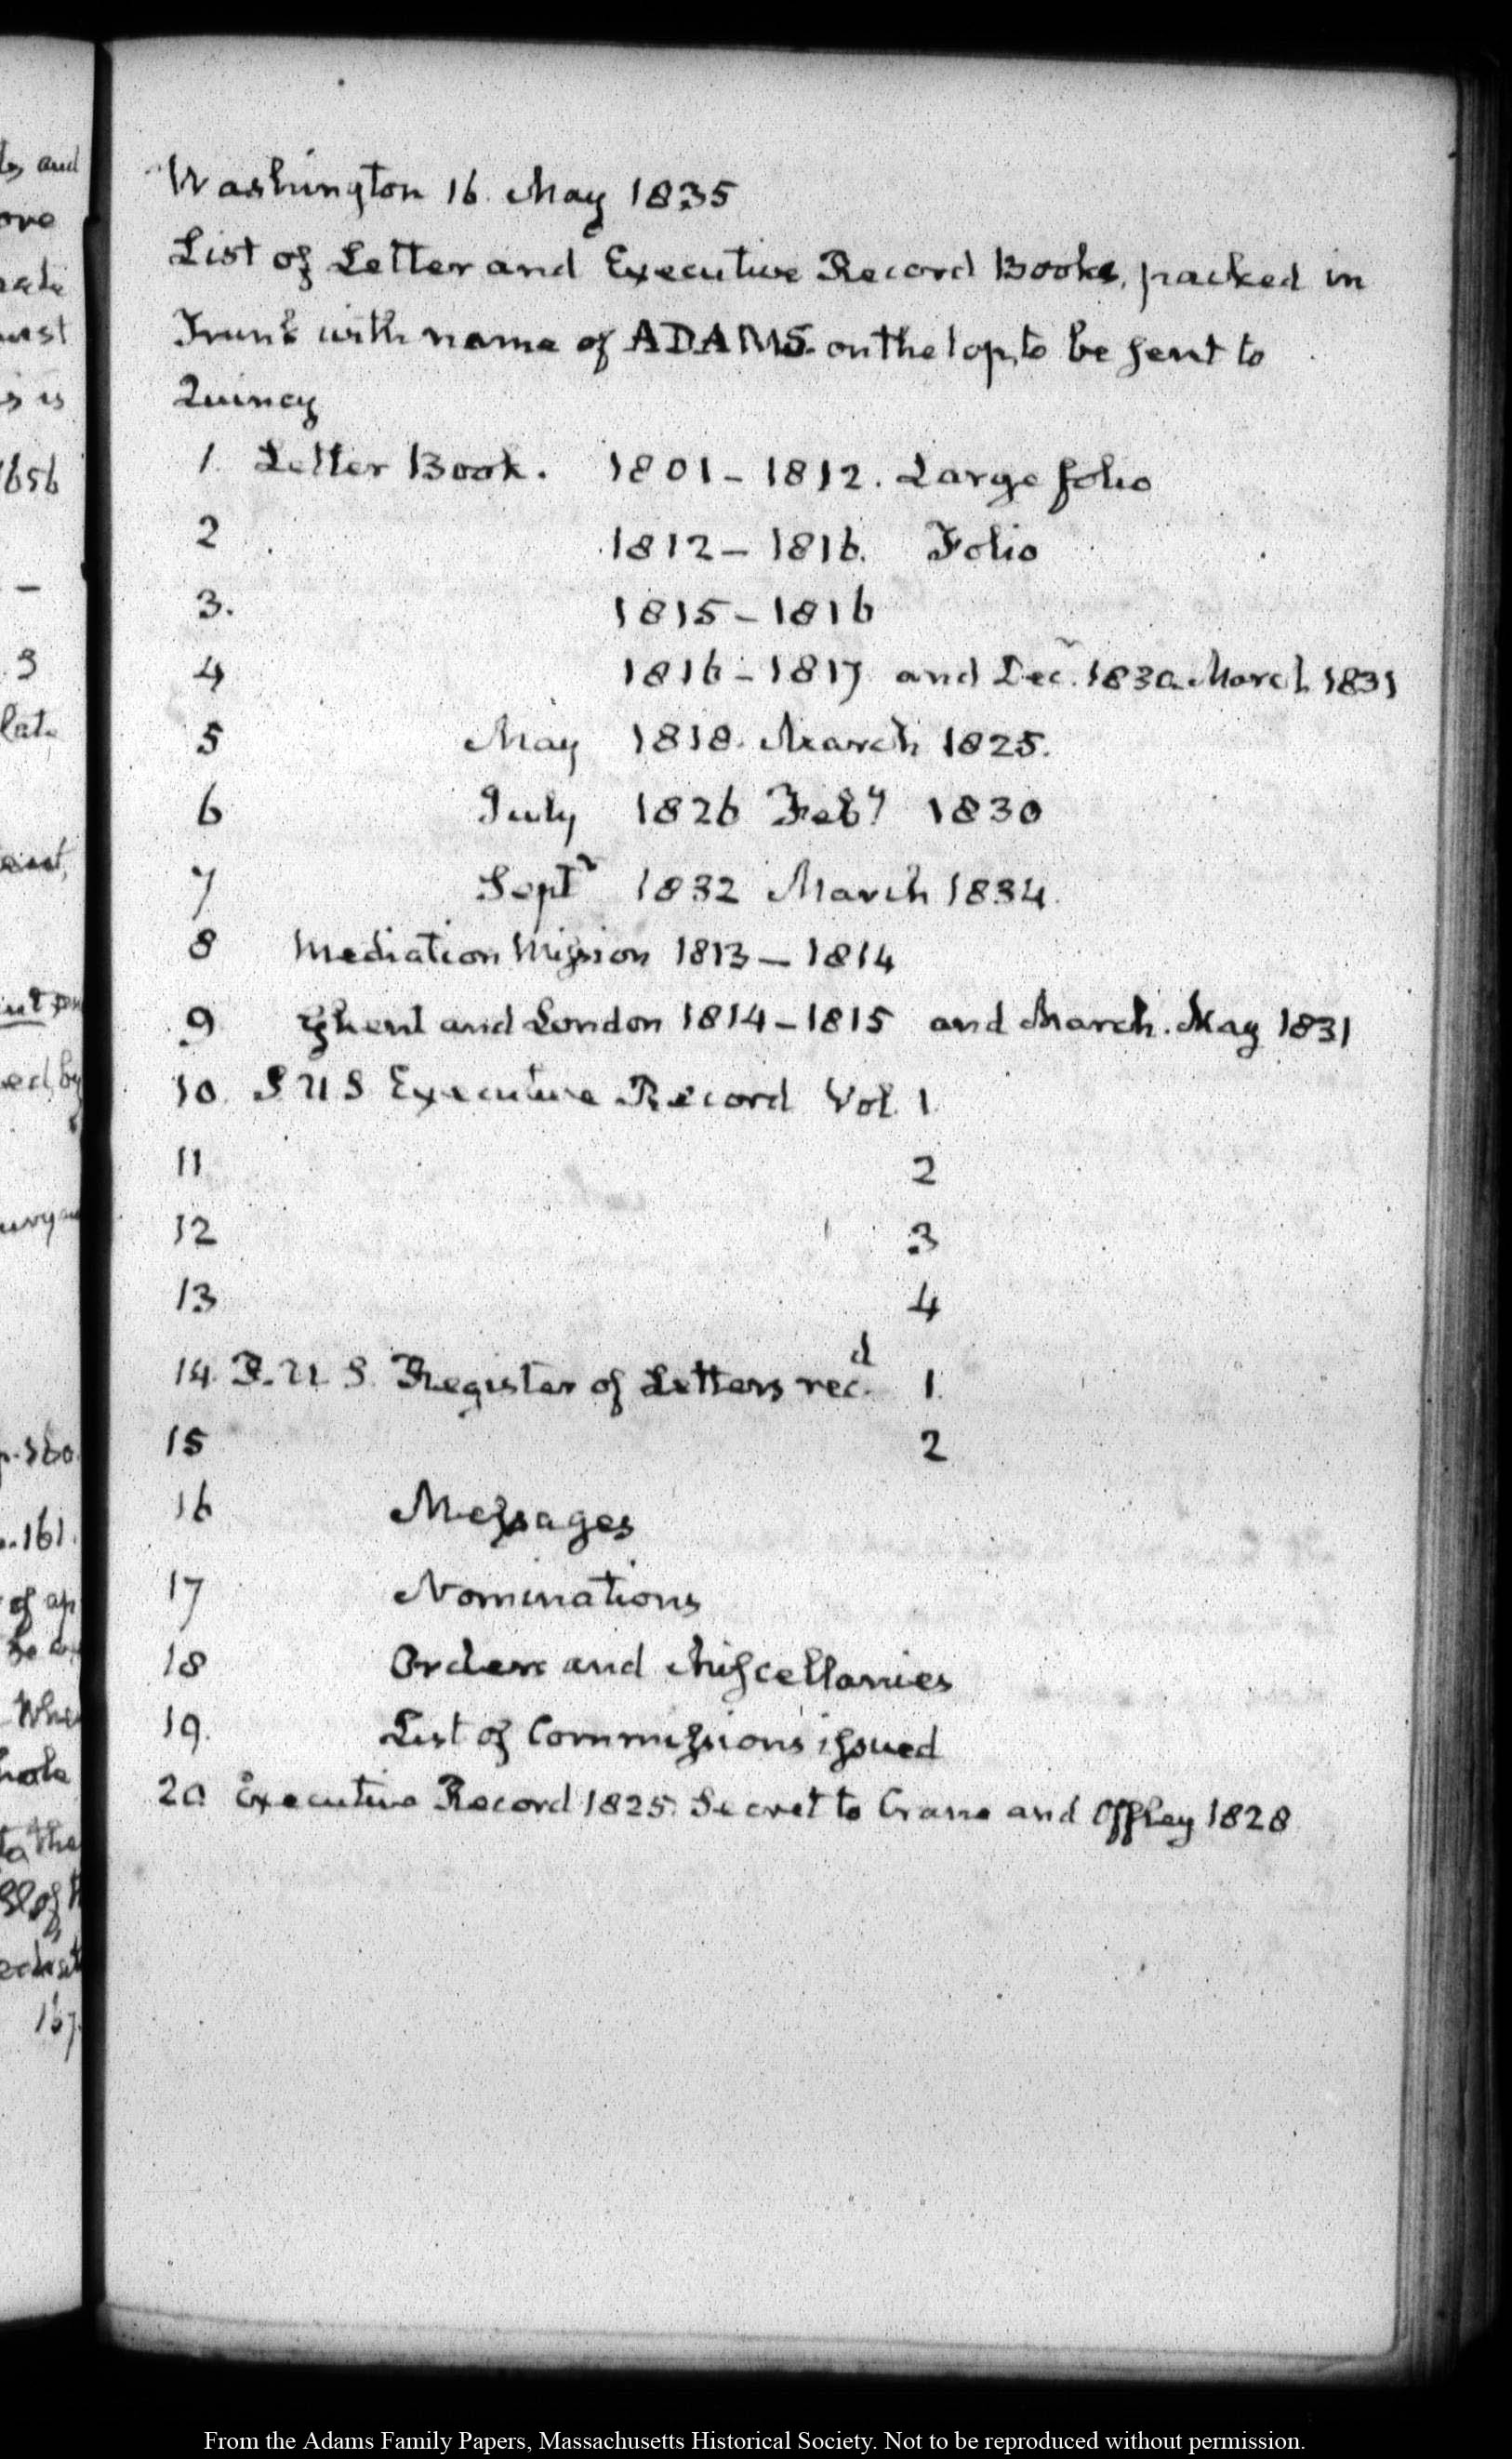 Washington 16. May 1835
List of Letter and Executive Record Books, packed in
Trunk with name of ADAMS. on the top, to be sent to
Quincy
1. Letter Book. 1801 - 1812. Large folio
2 1812 - 1816. Folio
3. 1815 - 1816
4 1816 - 1817 and Decr. 1830. March 1831
5 May 1818. March 1825.
6 July 1826 Feby 1830
7 Septr 1832 March 1834.
8 Mediation Mission 1813 — 1814
9 Ghent and London 1814 - 1815 and March. May 1831
10. S U S Executive Record Vol. 1.
11 2
12 3
13 4
14. P. U. S. Register of Letters recd. 1.
15 2
16 Messages
17 Nominations
18 Orders and Miscellanies
19. List of Commissions issued
20 Executive Record 1825. Secret to Crane and Offley 1828
From the Adams Family Papers, Massachusetts Historical Society. Not to be reproduced without permission.